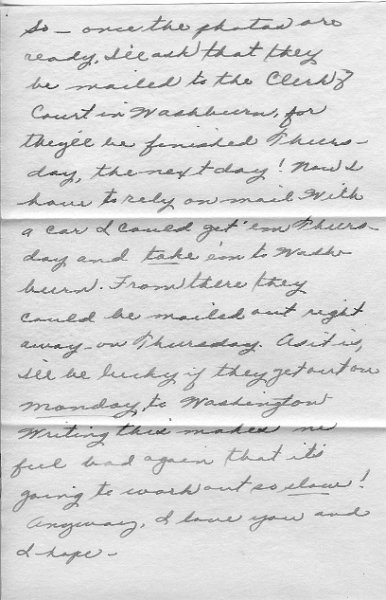 So - once the photos are
ready, I'll ask that they
be mailed to the Clerk of
Court in Washburn, for
they'll be finished Thurs-
day, the next day! Now I
have to rely on mail. With
a car I could get 'em Thurs-
day and take 'em to Wash-
burn. From there they
could be mailed out right
away - on Thursday. As it is,
I'll be lucky if they get out on
Monday, to Washington
Writing this makes me
feel bad again that it's
going to work out so slow!
Anyway, I love you and
I hope -